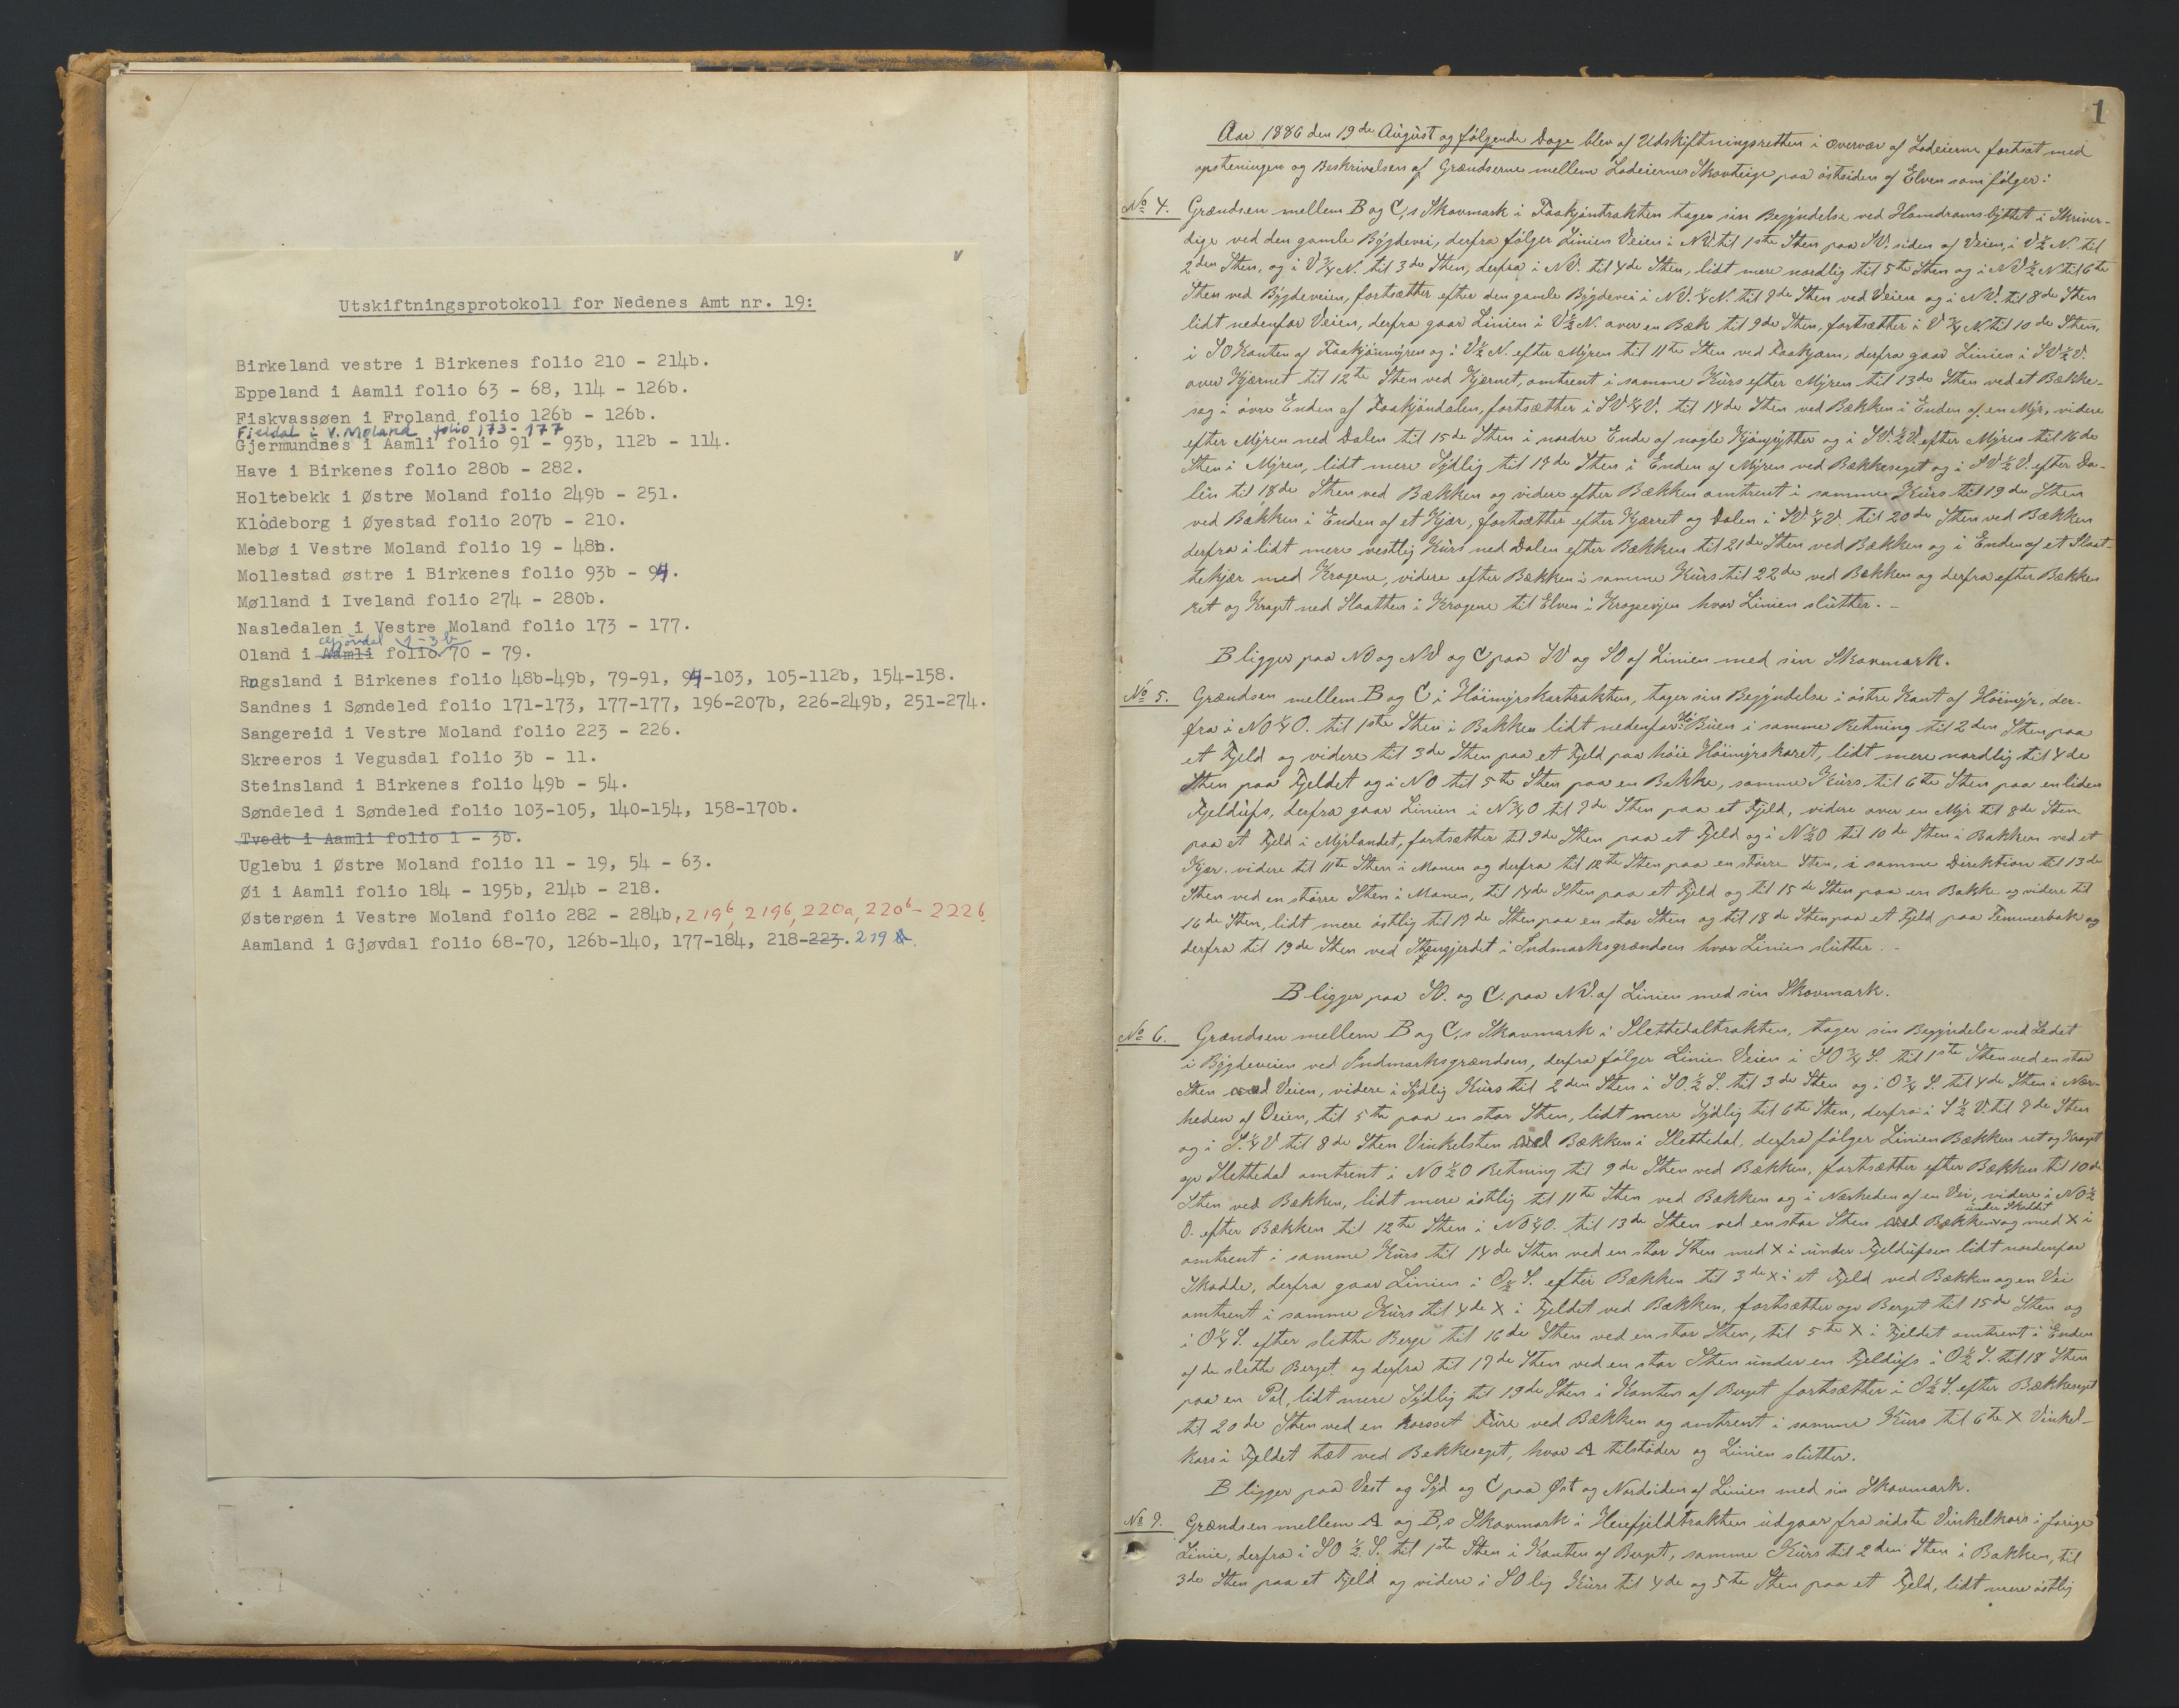 Utskiftningsprotokoll for Nedenes Amt nr. 19:
Birkeland vestre i Birkenes folio 210 - 214b.
Eppeland i Aamli folio 63 - 68, 114 - 126b.
Fiskvassøen i Froland folio 126b - 126b.
Fjeldal i V. Moland folio 173 - 177
Gjermundnes i Aamli folio 91 - 93b, 112b - 114.
Have i Birkenes folio 280b - 282.
Holtebekk i Østre Moland folio 249b - 251.
Klødeborg i Øyestad folio 207b - 210.
Mebø i Vestre Moland folio 19 - 48b.
Mollestad østre i Birkenes folio 93b - 94.
Mølland i Iveland folio 274 - 280b.
Nasledalen i Vestre Moland folio 173 - 177.
Gjövdal 1-3b
Oland i Aamli folio 70 - 79.
Rugsland i Birkenes folio 48b-49b, 79-91, 94-103, 105-112b, 154-158.
Sandnes i Søndeled folio 171-173, 177-177, 196-207b, 226-249b, 251-274.
Sangereid i Vestre Moland folio 223 - 226.
Skreeros i Vegusdal folio 3b - 11.
Steinsland i Birkenes folio 49b - 54.
Søndeled i Søndeled folio 103-105, 140-154, 158-170b.
Tvedt i Aamli folio 1 - 3b.
Uglebu i Østre Moland folio 11 - 19, 54 - 63.
Øi i Aamli folio 184 - 195b, 214b - 218.
Østerøen i Vestre Moland folio 282 - 284b, 219b, 219b, 220a, 220b - 222b.
Aamland i Gjøvdal folio 68-70, 126b-140, 177-184, 218-223. 219
1
Aar 1886 den 19de August og følgende Dage blev af Udskiftningsretten i Overvær af Lodeierne fortsat med
opsteningen og Beskrivelsen af Grændserne mellem Lodeiernes Skovteige paa østsiden af Elven som følger:
No 4. Grændsen mellem B og C,s Skovmark i Faakjøntrakten tager sin Begyndelse ved Homdramslyttet i Skriver-
dige ved den gamle Bygdevei, derfra følger Linien Veien i NV. til 1ste Sten paa SV. siden af Veien, i V½N. til
2den Sten, og i V¾N. til 3de Sten, derfra i NV. til 4de Sten, lidt mere nordlig til 5te Sten og i NV½N til 6te
Sten ved Bygdeveien, fortsætter efter den gamle Bygdevei i NV.¼N. til 7de Sten ved Veien og i NV. til 8de Sten
lidt nedenfor Veien, derfra gaar Linien i V½N. over en Bæk til 9de Sten, fortsætter i V¾N. til 10de Sten,
i SO Kanten af Faakjønmyren og i V½N. efter Myren til 11te Sten ved Faakjærn, derfra gaar Linien i SV½V.
over Kjærnet til 12te Sten ved Kjærnet, omtrent i samme Kurs efter Myren til 13de Sten ved et Bække-
sog i øvre Enden af Faakjøndalen, fortsætter i SV¼V. til 14de Sten ved Bækken i Enden af en Myr, videre
efter Myren ned Dalen til 15de Sten i nordre Ende af nogle Kjønpytter og i SV.½V. efter Myren til 16de
Sten i Myren, lidt mere Sydlig til 17de Sten i Enden af Myren ved Bækkesøget og i SV½V. efter Da-
len til 18de Sten ved Bækken og videre efter Bækken omtrent i samme Kurs til 19de Sten
ved Bækken i Enden af et Kjær, fortsætter efter Kjærret og Dalen i SV.¼V. til 20de Sten ved Bækken
derfra i lidt mere vestlig Kurs ned Dalen efter Bækken til 21de Sten ved Bækken og i Enden af et Slaat-
tekjær med Krogene, videre efter Bækken i samme Kurs til 22de ved Bækken og derfra efter Bækken
ret og Kraget ned Slaatten i Krogene til Elven i Krogeevjen hvor Linien slutter. -
B ligger paa NO og NV og C paa SV og SO af Linien med sin Skovmark.
No 5. Grændsen mellem B og C i Høimyrskartrakten, tager sin Begyndelse i østre Kant af Høimyr, der-
fra i NO¼O. til 1ste Sten i Bakken lidt nedenfor Buen i samme Retning til 2den Sten paa
et Fjeld og videre til 3de Sten paa et Fjeld paa høie Høimyrskaret, lidt mere nordlig til 4de
Sten paa Fjeldet og i NO til 5te Sten paa en Bakke, samme Kurs til 6te Sten paa en liden
Fjeldufs, derfra gaar Linien i N¾O til 7de Sten paa et Fjeld, videre over en Myr til 8de Sten
paa et Fjeld i Myrlandet, fortsætter til 9de Sten paa et Fjeld og i N½O til 10de Sten i Bakken ved et
Kjær, videre til 11te Sten i Monen og derfra til 12te Sten paa en større Sten, i samme Direktion til 13de
Sten ved en større Sten i Monen, til 14de Sten paa et Fjeld og til 15de Sten paa en Bakke og videre til
16de Sten, lidt mere østlig til 17de Sten paa en stor Sten og til 18de Sten paa et Fjeld paa Temmerbak og
derfra til 19de Sten ved Stengjerdet i Indmarksgrændsen hvor Linien slutter. -
B ligger paa SO. og C. paa NV. af Linien med sin Skovmark.
No 6. Grændsen mellem B og C,s Skovmark i Slettedaltrakten, tager sin Begyndelse ved Ledet
i Bygdeveien ved Indmarksgrændsen, derfra følger Linien Veien i SO¾S. til 1ste Sten ved en stor
Sten ved Veien, videre i Sydlig Kurs til 2den Sten i SO.½S. til 3de Sten og i O¾S. til 4de Sten i Nær-
heden af Veien, til 5te paa en stor Sten, lidt mere Sydlig til 6te Sten, derfra i S½V. til 7de Sten
og i S.¼V til 8de Sten Vinkelsten ved Bækken i Slettedal, derfra følger Linien Bækken ret og Kraget
op Slettedal omtrent i NO½O Retning til 9de Sten ved Bækken, fortsætter efter Bækken til 10de
Sten ved Bækken, lidt mere østlig til 11te Sten ved Bækken og i Nærheden af en Vei, videre i NO½
O. efter Bækken til 12te Sten i NO¼O. til 13de Sten ved en stor Sten ved Bækken under Skoddet og med X i
omtrent i samme Kurs til 14de Sten ved en stor Sten med X i under Fjeldufsen lidt nordenfor
Skodde, derfra gaar Linien i O½S. efter Bækken til 3de X i et Fjeld ved Bækken og en Vei
omtrent i samme Kurs til 4de X i Fjeldet ved Bækken, fortsætter op Berget til 15de Sten og
i O¼S. efter slette Berge til 16de Sten ved en stor Sten, til 5te X i Fjeldet omtrent i Enden
af de slette Berget og derfra til 17de Sten ved en stor Sten under en Fjeldufs i O½S. til 18 Sten
paa en Pal, lidt mere Sydlig til 19de Sten i Kanten af Berget fortsætter i O½S. efter Bækkesøget
til 20de Sten ved en korsset Fure ved Bækken og omtrent i samme Kurs til 6te X Vinkel-
kors i Fjeldet tæt ved Bekkesøget, hvor A tilstøder og Linien slutter.
B ligger paa Vest og Syd og C paa Øst og Nordsiden af Linien med sin Skovmark.
No 7. Grændsen mellem A og B,s Skovmark i Heiefjeldtrakten udgaar fra sidste Vinkelkors i forige
Linie, derfra i SO½S. til 1ste Sten i Kanten af Berget, samme Kurs til 2den Sten i Bakken, til
3de Sten paa et Fjeld og videre i SOlig Kurs til 4de og 5te Sten paa et Fjeld, lidt mere østlig